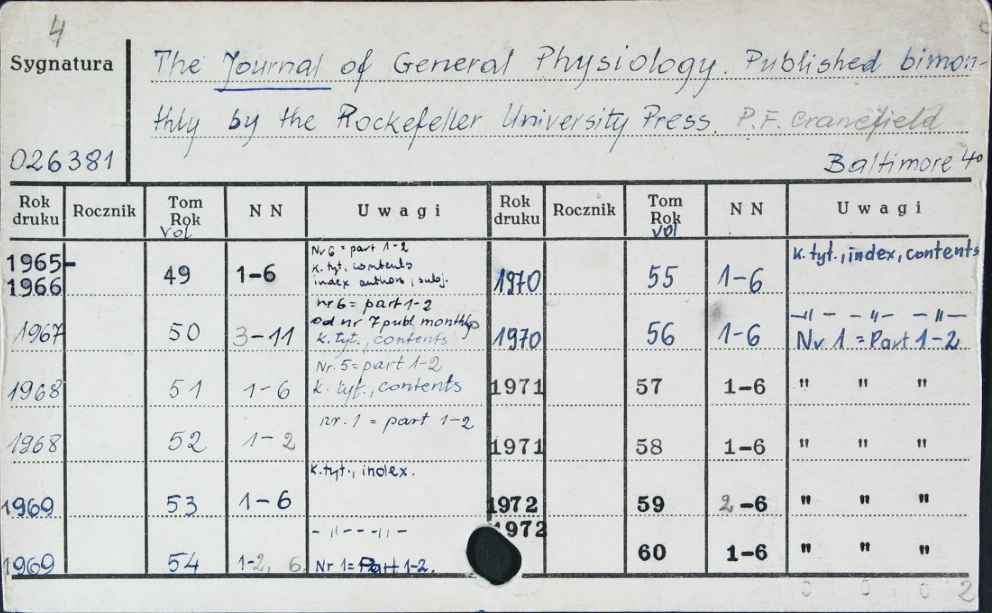 4
Sygnatura
The Journal of General Physiology. Published bimon-
thly by the Rockefeller University Press. P.F. Cranefield
026381
Baltimore 4°
Rok druku Rocznik Tom Rok Vol NN Uwagi Rok druku Rocznik Tom Rok Vol NN Uwagi
1965-1966 49 1-6 Nr 6 = part 1-2 k. tyt., contents index authors, subj. 1970 55 1-6 k. tyt., index, contents
1967 50 3-11 nr 6 = part 1-2 od nr 7 publ. monthly k. tyt., contents 1970 56 1-6 -"- -"- -"- Nr 1 = Part 1-2
1968 51 1-6 Nr. 5 = part 1-2 k. tyt., contents 1971 57 1-6 " " "
1968 52 1-2 nr. 1 = part 1-2 1971 58 1-6 " " "
1969 53 1-6 k. tyt., index. 1972 59 2-6 " " "
1969 54 1-2, 6. -"- -"- Nr 1 = Part 1-2. 1972 60 1-6 " " "
2